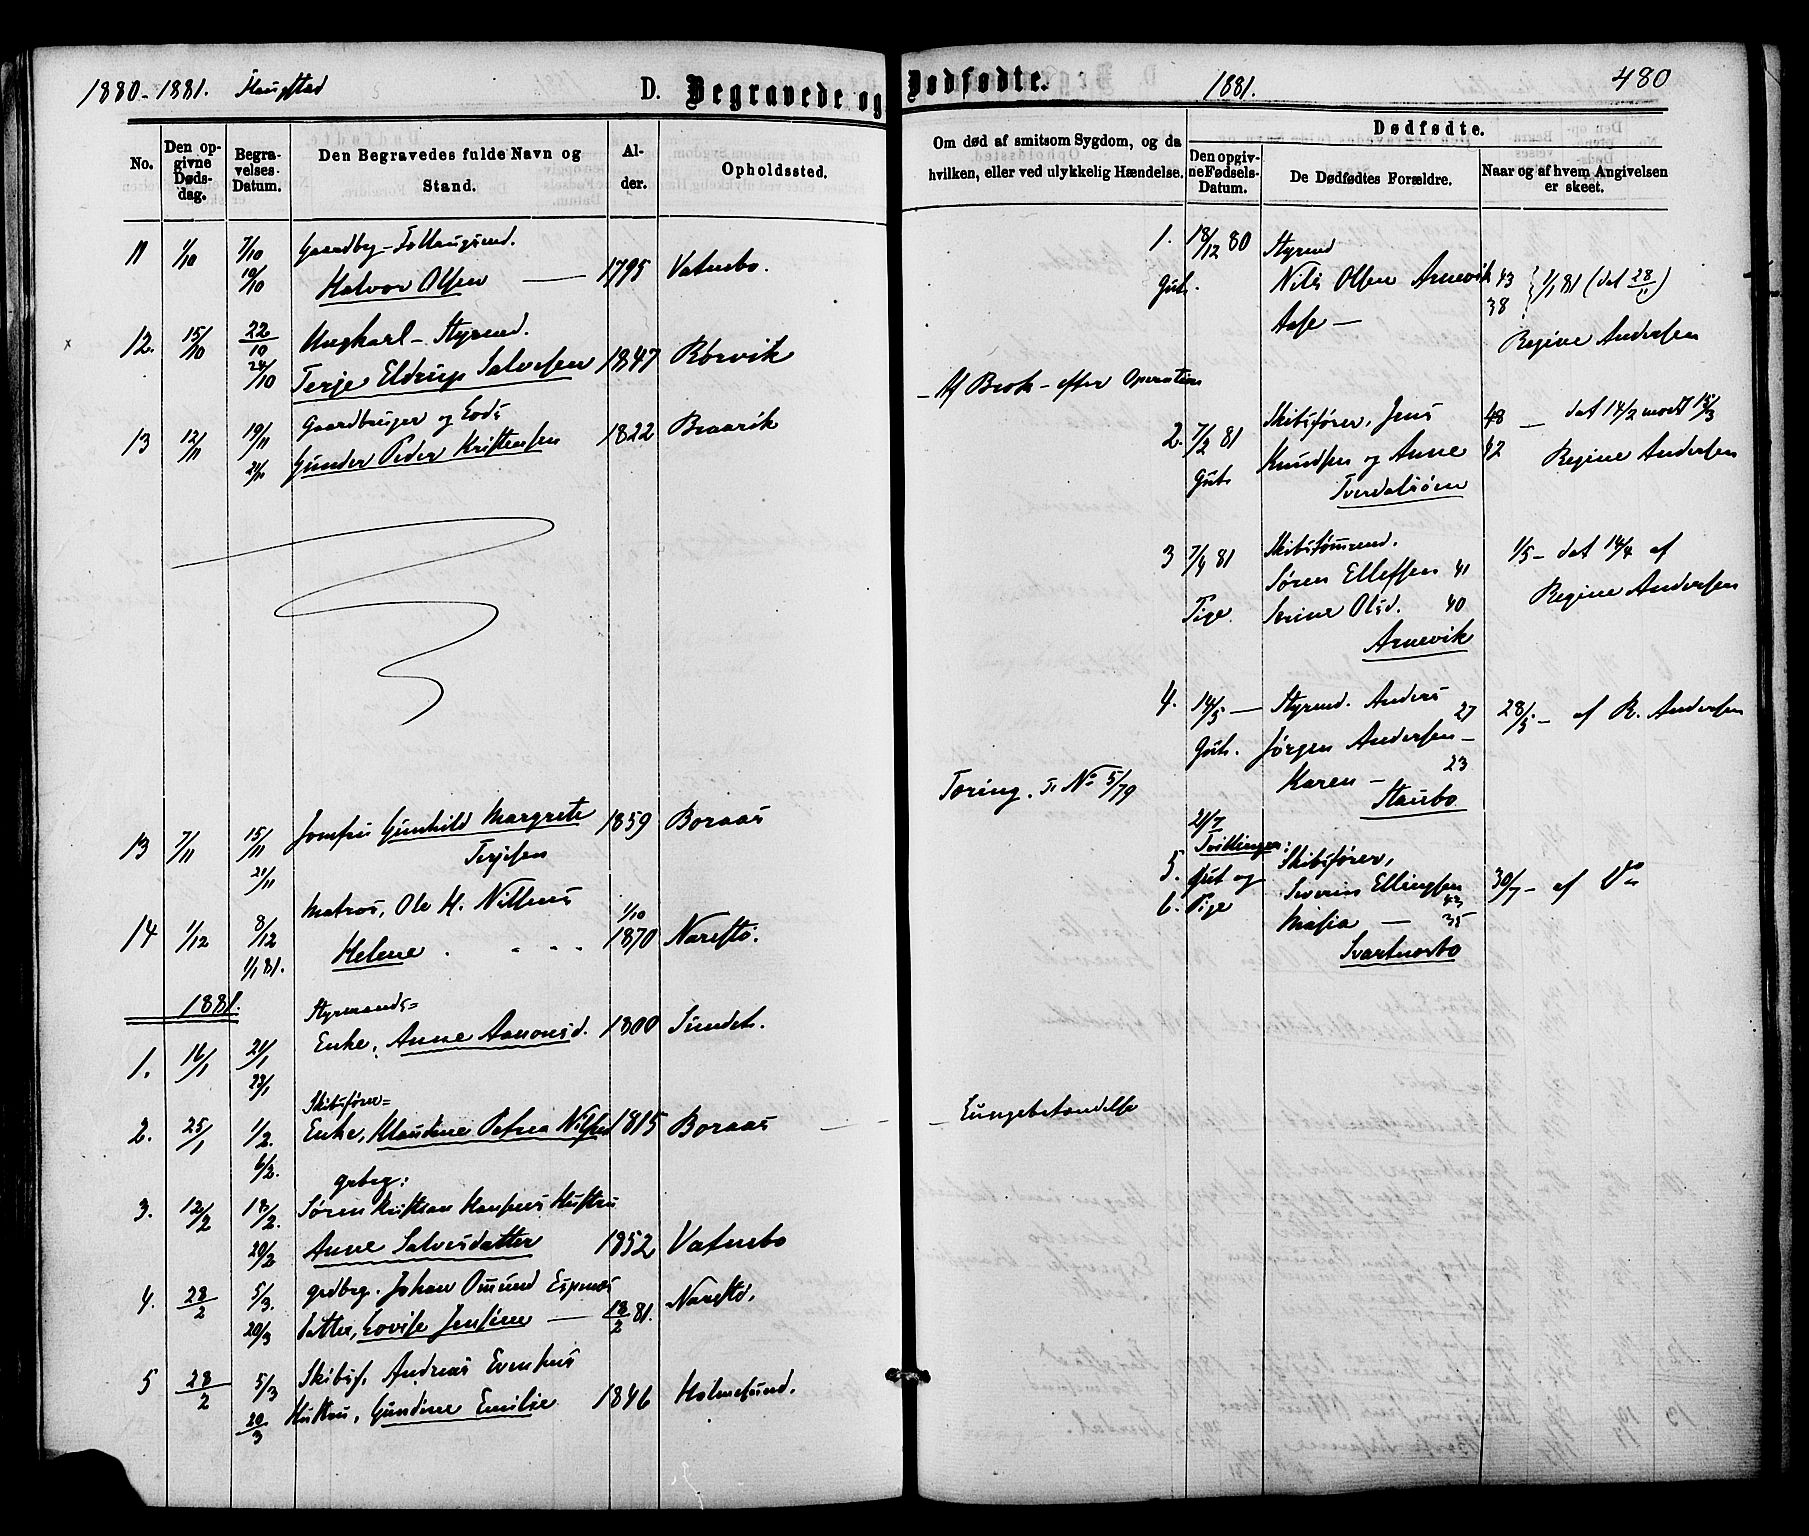 1880-1881. Flangstad
D. Begravede og Dødfødte.
1881.
480
No.
Den opgivne Dødsdag.
Begravelses-Datum.
Den Begravedes fulde Navn og Stand.
Alder.
Opholdssted.
Om død af smitsom Sygdom, og da hvilken, eller ved ulykkelig Hændelse.
Dødfødte.
Den opgivne Fødsels-Datum.
De Dødfødtes Forældre.
Naar og af hvem Angivelsen er skeet.
11 1/10 7/10 Gaardbr.
19/10 Halvor Olsen — 1795 Vatnebo.
12. 15/10 22/10 Ungkarl – Styrmd.
24/10 Terje Eldrup Salvesen 1847 Børvik
Af Brok – efter Operation
13 12/11 19/11 Gaardbruger og Lods
21/11 Gunder Peder Kristensen 1822 Braavik
13 7/11 15/11 Jomfru Gunhild Margrete 1859 Boraas
21/11 Terjesen
Tæring. N° 5/79
14 1/12 8/12 Matros, Ole H. Nilsens 1/10
1/1 81. Helene 1870 Narestø.
1881.
Styrmands=
1. 16/1 21/1 Enke, Anne Aanonsd. 1800 Sundet.
23/1
Skibsfører=
2. 25/1 1/2. Enke, Klaudine Petrea Nilsd 1815 Boraas
Lungebetændelse
6/2.
grbrg:
3. 12/2 18/2. Søren Kristian Hansens Hustru
20/2 Anne Salvesdatter 1852 Vatnebo
4. 28/2 5/3. grdbrg. Johan Omund Espenæs
20/3 Datter, Lovise Jensine — 18/2 81. Narestø.
5 28/2 5/3 Skibsf. Andreas Evensens
20/3 Hustru, Gundine Emilie 1846 Holmesund.
1. 18/12 80 Styrmd
Gut. Nils Olsen Arnevik 43 1/1 81 (dat 28/11)
Aase — 38
Regine Andersen
2. 7/2 81 Skibsfører, Jens 48 — dat 14/2 modt 15/3
Gut. Knudsen og Anne 42 Regine Andersen
Tverdalsøen
3 7/4 81 Skibstømrmd. 1/5 – dat 14/4 af
Søren Ellefsen 41 Regine Andersen
Pige Serine Olsd. 40
Arnevik
4. 14/5 — Styrmd. Anders 27 28/5 – af R. Andersen
Gut. Jørgen Andersen –
Karen – 23
Staubo
21/7
Tvillinger:
5. Gut og Skibsfører,
6. Pige Severin Ellingsen 43 30/7 – af
Masia — 35
Svartnesbo